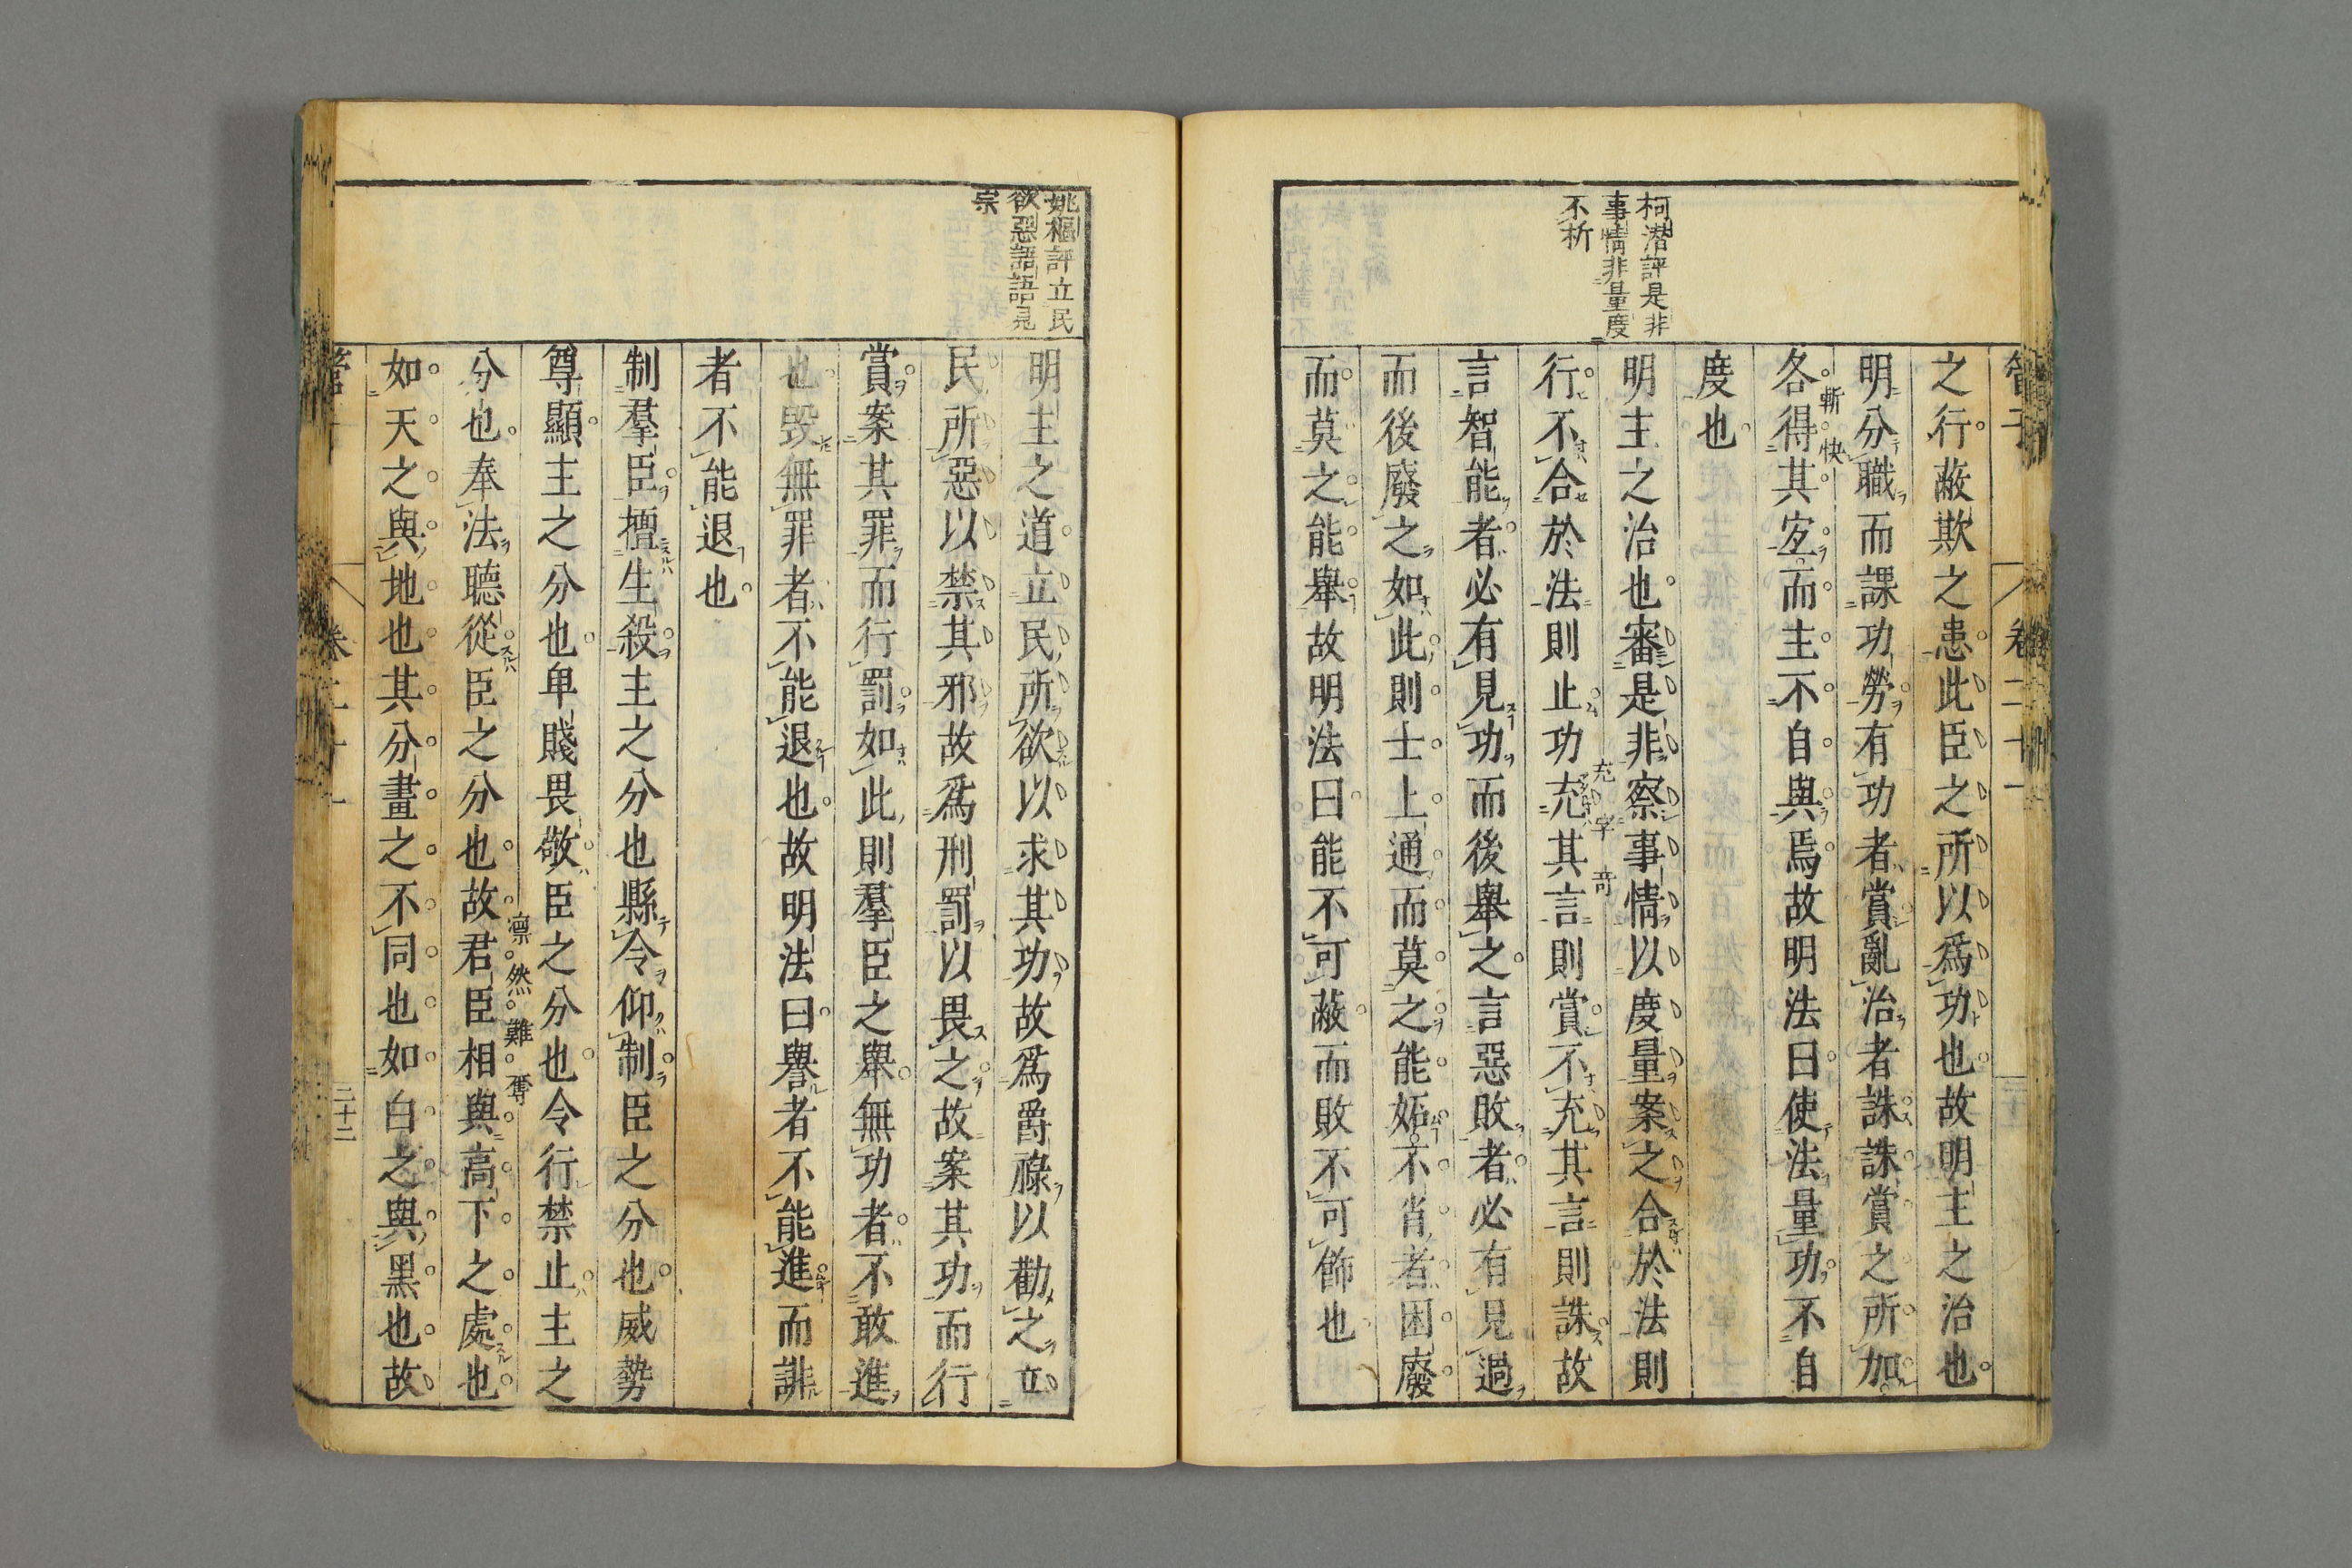 管子
卷二十一
柯潛評是非
事情非量度
不析
之行蔽欺之患此臣之所以爲功也故明主之治也
明分職而課功勞有功者賞亂治者誅誅賞之所加
各得其宐而主不自與焉故明法曰使法量功不自
斬快
度也
明主之治也審是非察事情以度量案之合於法則
行不合於法則止功充其言則賞不充其言則誅故
充字奇
言智能者必有見功而後舉之言惡敗者必有見過
而後廢之如此則士上通而莫之能妬不肖者困廢
而莫之能舉故明法曰能不可蔽而敗不可飾也
姚樞評立民
欲惡語語見
宗
明主之道立民所欲以求其功故爲爵祿以勸之立
民所惡以禁其邪故爲刑罰以畏之故案其功而行
賞案其罪而行罰如此則羣臣之舉無功者不敢進
也毀無罪者不能退也故明法曰譽者不能進而誹
者不能退也
制羣臣擅生殺主之分也縣令仰制臣之分也威勢
尊顯主之分也卑賤畏敬臣之分也令行禁止主之
分也奉法聽從臣之分也故君臣相與高下之處也
凛然難奪
如天之與地也其分畫之不同也如白之與黑也故
管
卷二十一
二十二